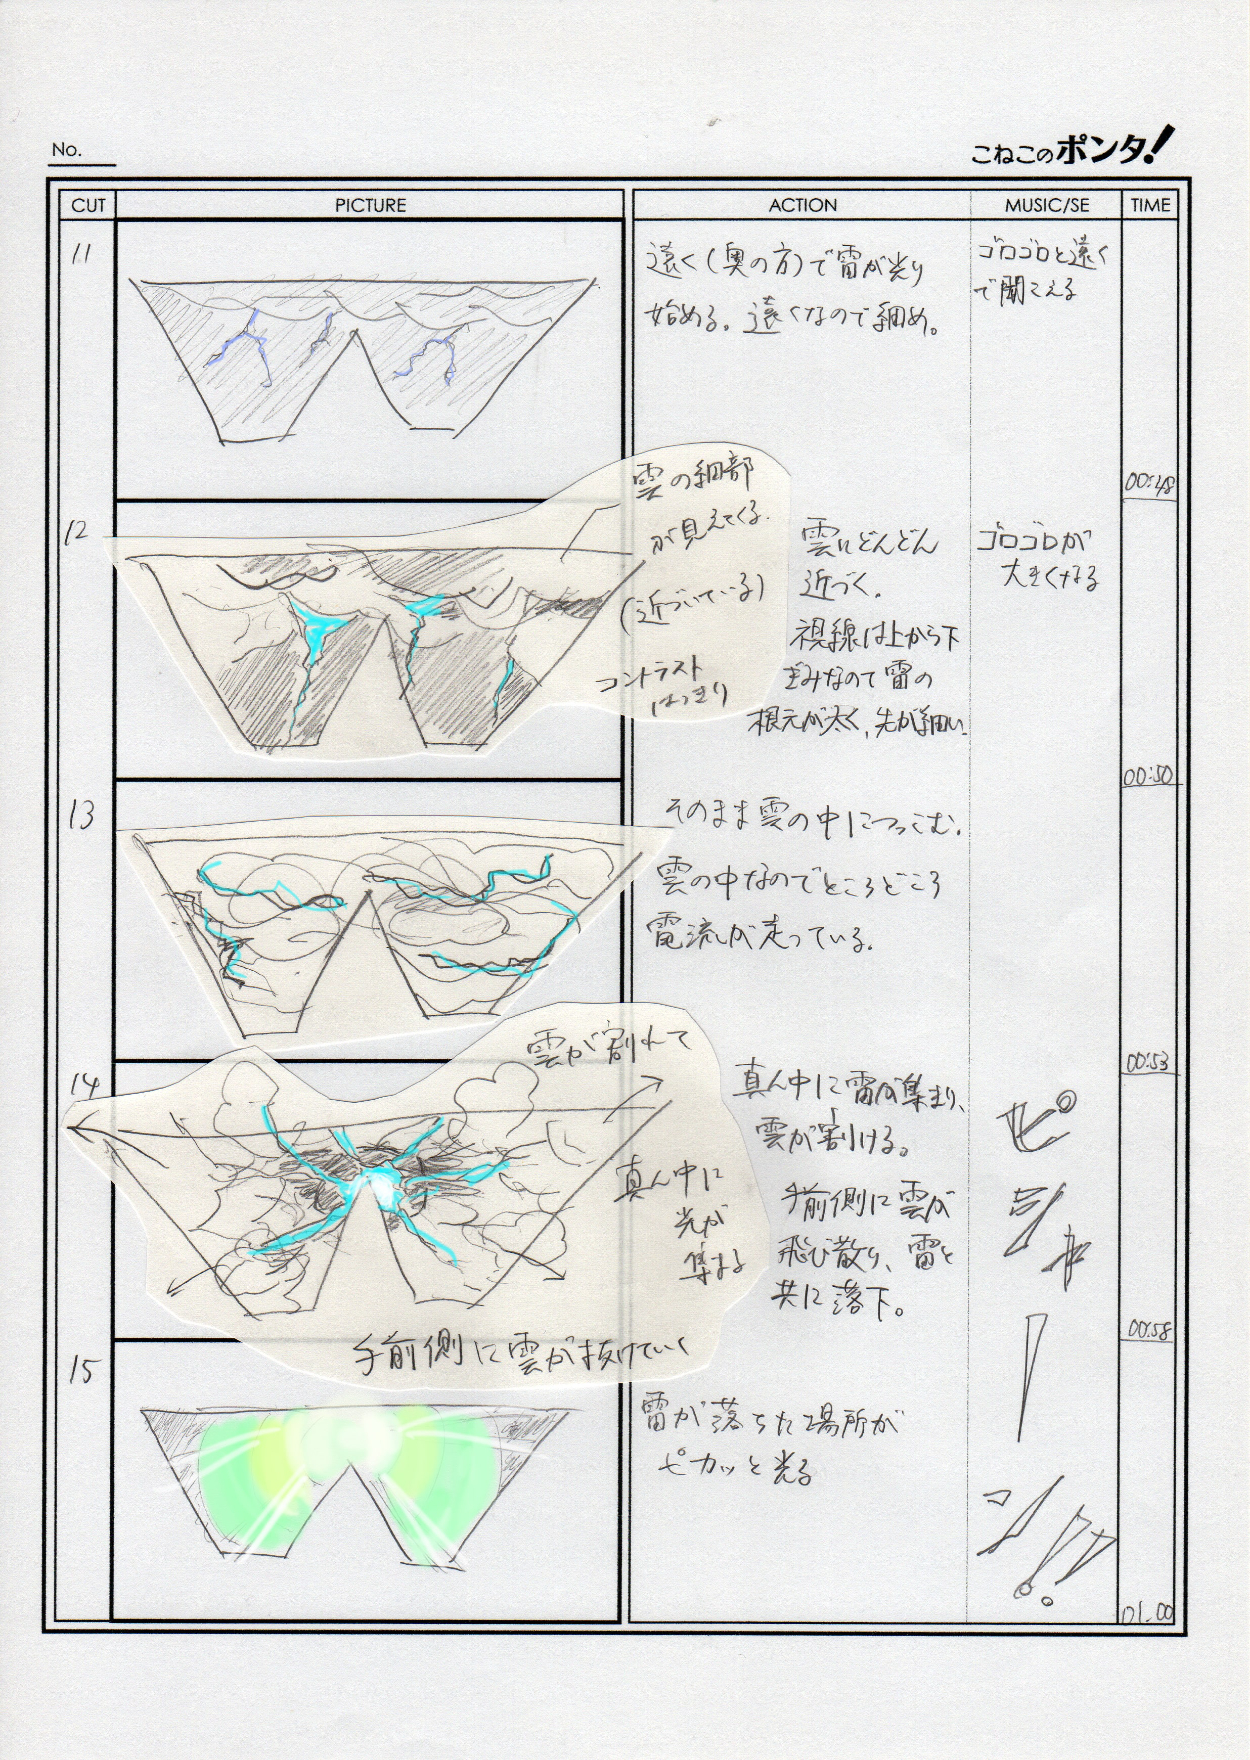 No.
こねこのポンタ!
CUT
PICTURE
ACTION
MUSIC/SE
TIME
11
遠く(奥の方)で雷が光り
始める。遠くなので細め。
ゴロゴロと遠く
で聞こえる
00:48
12
雲の細部
が見えてくる。
(近づいている)
コントラスト
はっきり
雲にどんどん
近づく。
視線は上から下
ぎみなので雷の
根元が太く、先が細い。
ゴロゴロが
大きくなる
00:50
13
そのまま雲の中につっこむ。
雲の中なのでところどころ
電流が走っている。
00:53
14
雲が割れて
真ん中に
光が
集まる
手前側に雲が抜けていく
真ん中に雷が集まり、
雲が割ける。
手前側に雲が
飛び散り、雷と
共に落下。
ピ
シ
ャ
ー
00:58
15
雷が落ちた場所が
ピカッと光る
ン!!
01.00